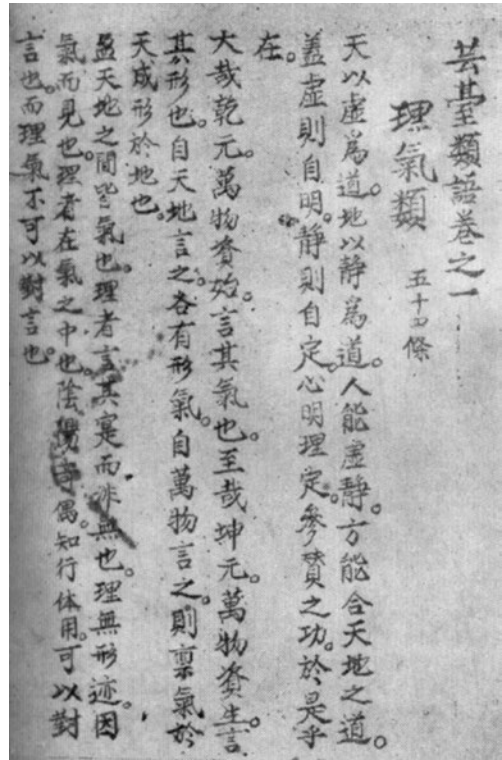 芸臺類語巻之一
理氣類 五十四條
天以虛爲道。地以静爲道。人能虛静。方能合天地之道。
蓋虛則自明。静則自定。心明理定。參賛之功。於是乎
在。
大哉乾元。萬物資始。言其氣也。至哉坤元。萬物資生。言
其形也。自天地言之。各有形氣。自萬物言之。則禀氣於
天成形於地也。
盈天地之間皆氣也。理者言其寔而非無也。理無形迹。因
氣而見也。理者在氣之中也。陰陽奇偶。知行体用。可以對
言也。而理氣不可以對言也。